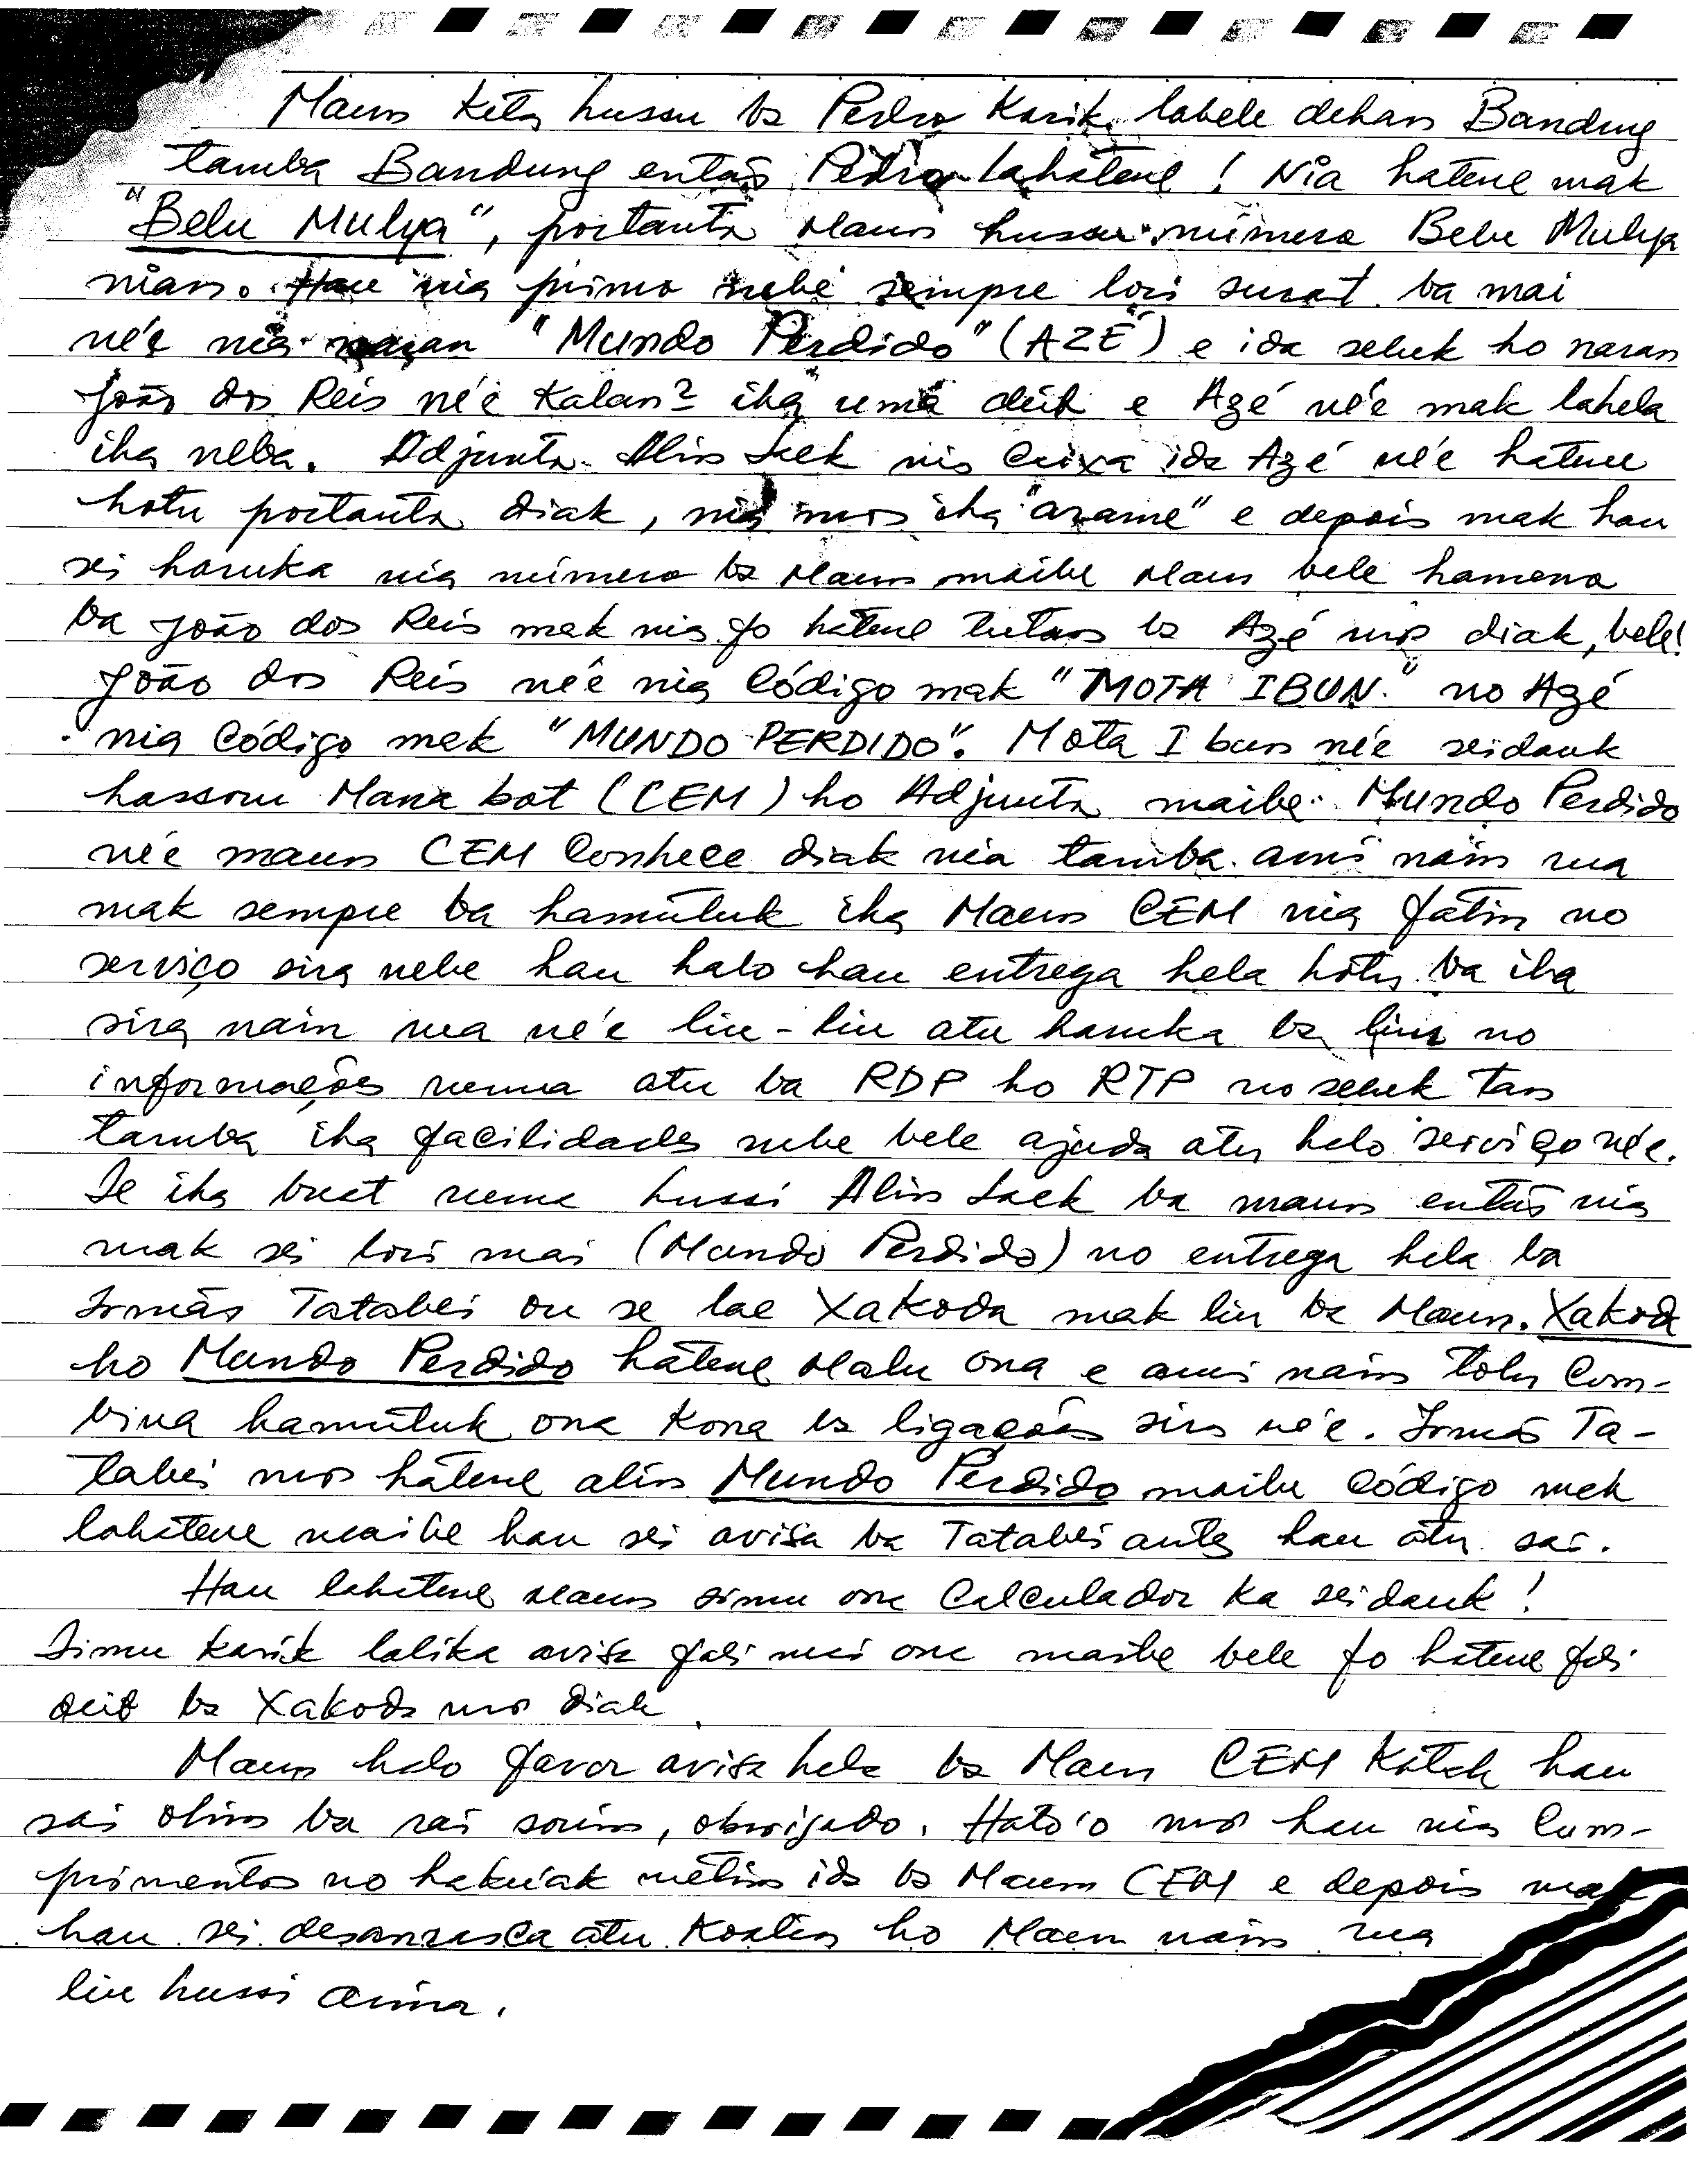 Maun Kita hussu ba Pedro Karik labele dehan Bandung
tamba Bandung entaõ Pedro lahátene! Nia hatene mak
"Belu Mulya", portanto Maun hussu número Belu Mulya
nian. Hau nia primo nebé sempre lori surat ba mai
né'e nia naran "Mundo Perdido" (AZÉ) e ida seluk ho naran
João dos Reis né'e Kalan? iha uma deit e Azé né'e mak lahela
iha neba. Adjunto Alin Laek nia Caixa ida Azé né'e hatene
hotu portanto diak, nia mos iha "arame" e depois mak hau
sei haruka nia número ba Maun maibe Maun bele hamena
ba João dos Reis mak nia fo hátene tutan ba Azé mos diak, bele!
João dos Reis né'e nia Código mak "MOTA IBUN." no Azé
nia Código mak "MUNDO PERDIDO". Mota Ibun né'e seidauk
hassoru Mana bot (CEM) ho Adjunto maibe Mundo Perdido
né'e maun CEM Conhece diak nia tamba ami nain rua
mak sempre ba hamútuk iha Maun CEM nia fátin no
serviço sira nebe hau halo hau entrega hela hotu ba iha
sira nain rua né'e liu-liu atu haruka ba liur no
informações ruma atu ba RDP ho RTP no seluk tan
tamba iha facilidades nebe bele ajuda atu halo serviço né'e.
Se iha buat ruma hussi Alin Laek ba maun entaõ nia
mak sei lori mai (Mundo Perdido) no entrega hela ba
Irmás Tatabei ou se lae Xakoda mak liu ba Maun. Xakoda
ho Mundo Perdido hátene Malu ona e ami nain tolu Com-
bina hamútuk ona Kona ba ligações sira né'e. Irmás Ta-
tabei mos hátene alin Mundo Perdido maibe Código mak
lahatene maibe hau sei avisa ba Tatabei antes hau atu sai.
Hau lahatene Maun simu ona Calculador Ka seidauk!
Simu Karik lalika avisa fali mai ona maibe bele fo hatene fali
deit ba Xakoda mos diak.
Maun halo favor avisa hela ba Maun CEM Katak hau
sai ohin ba rai sorin, obrigado. Hato'o mos hau nia Cum-
primentos no hakuak métin ida ba Maun CEM e depois mak
hau sei desenrasca atu Koalia ho Maun nain rua
liu hussi